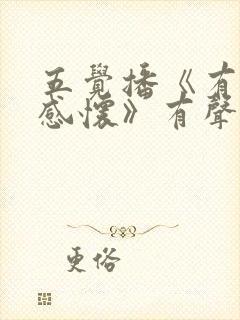 五覺播《有
感懷》有聲
更俗